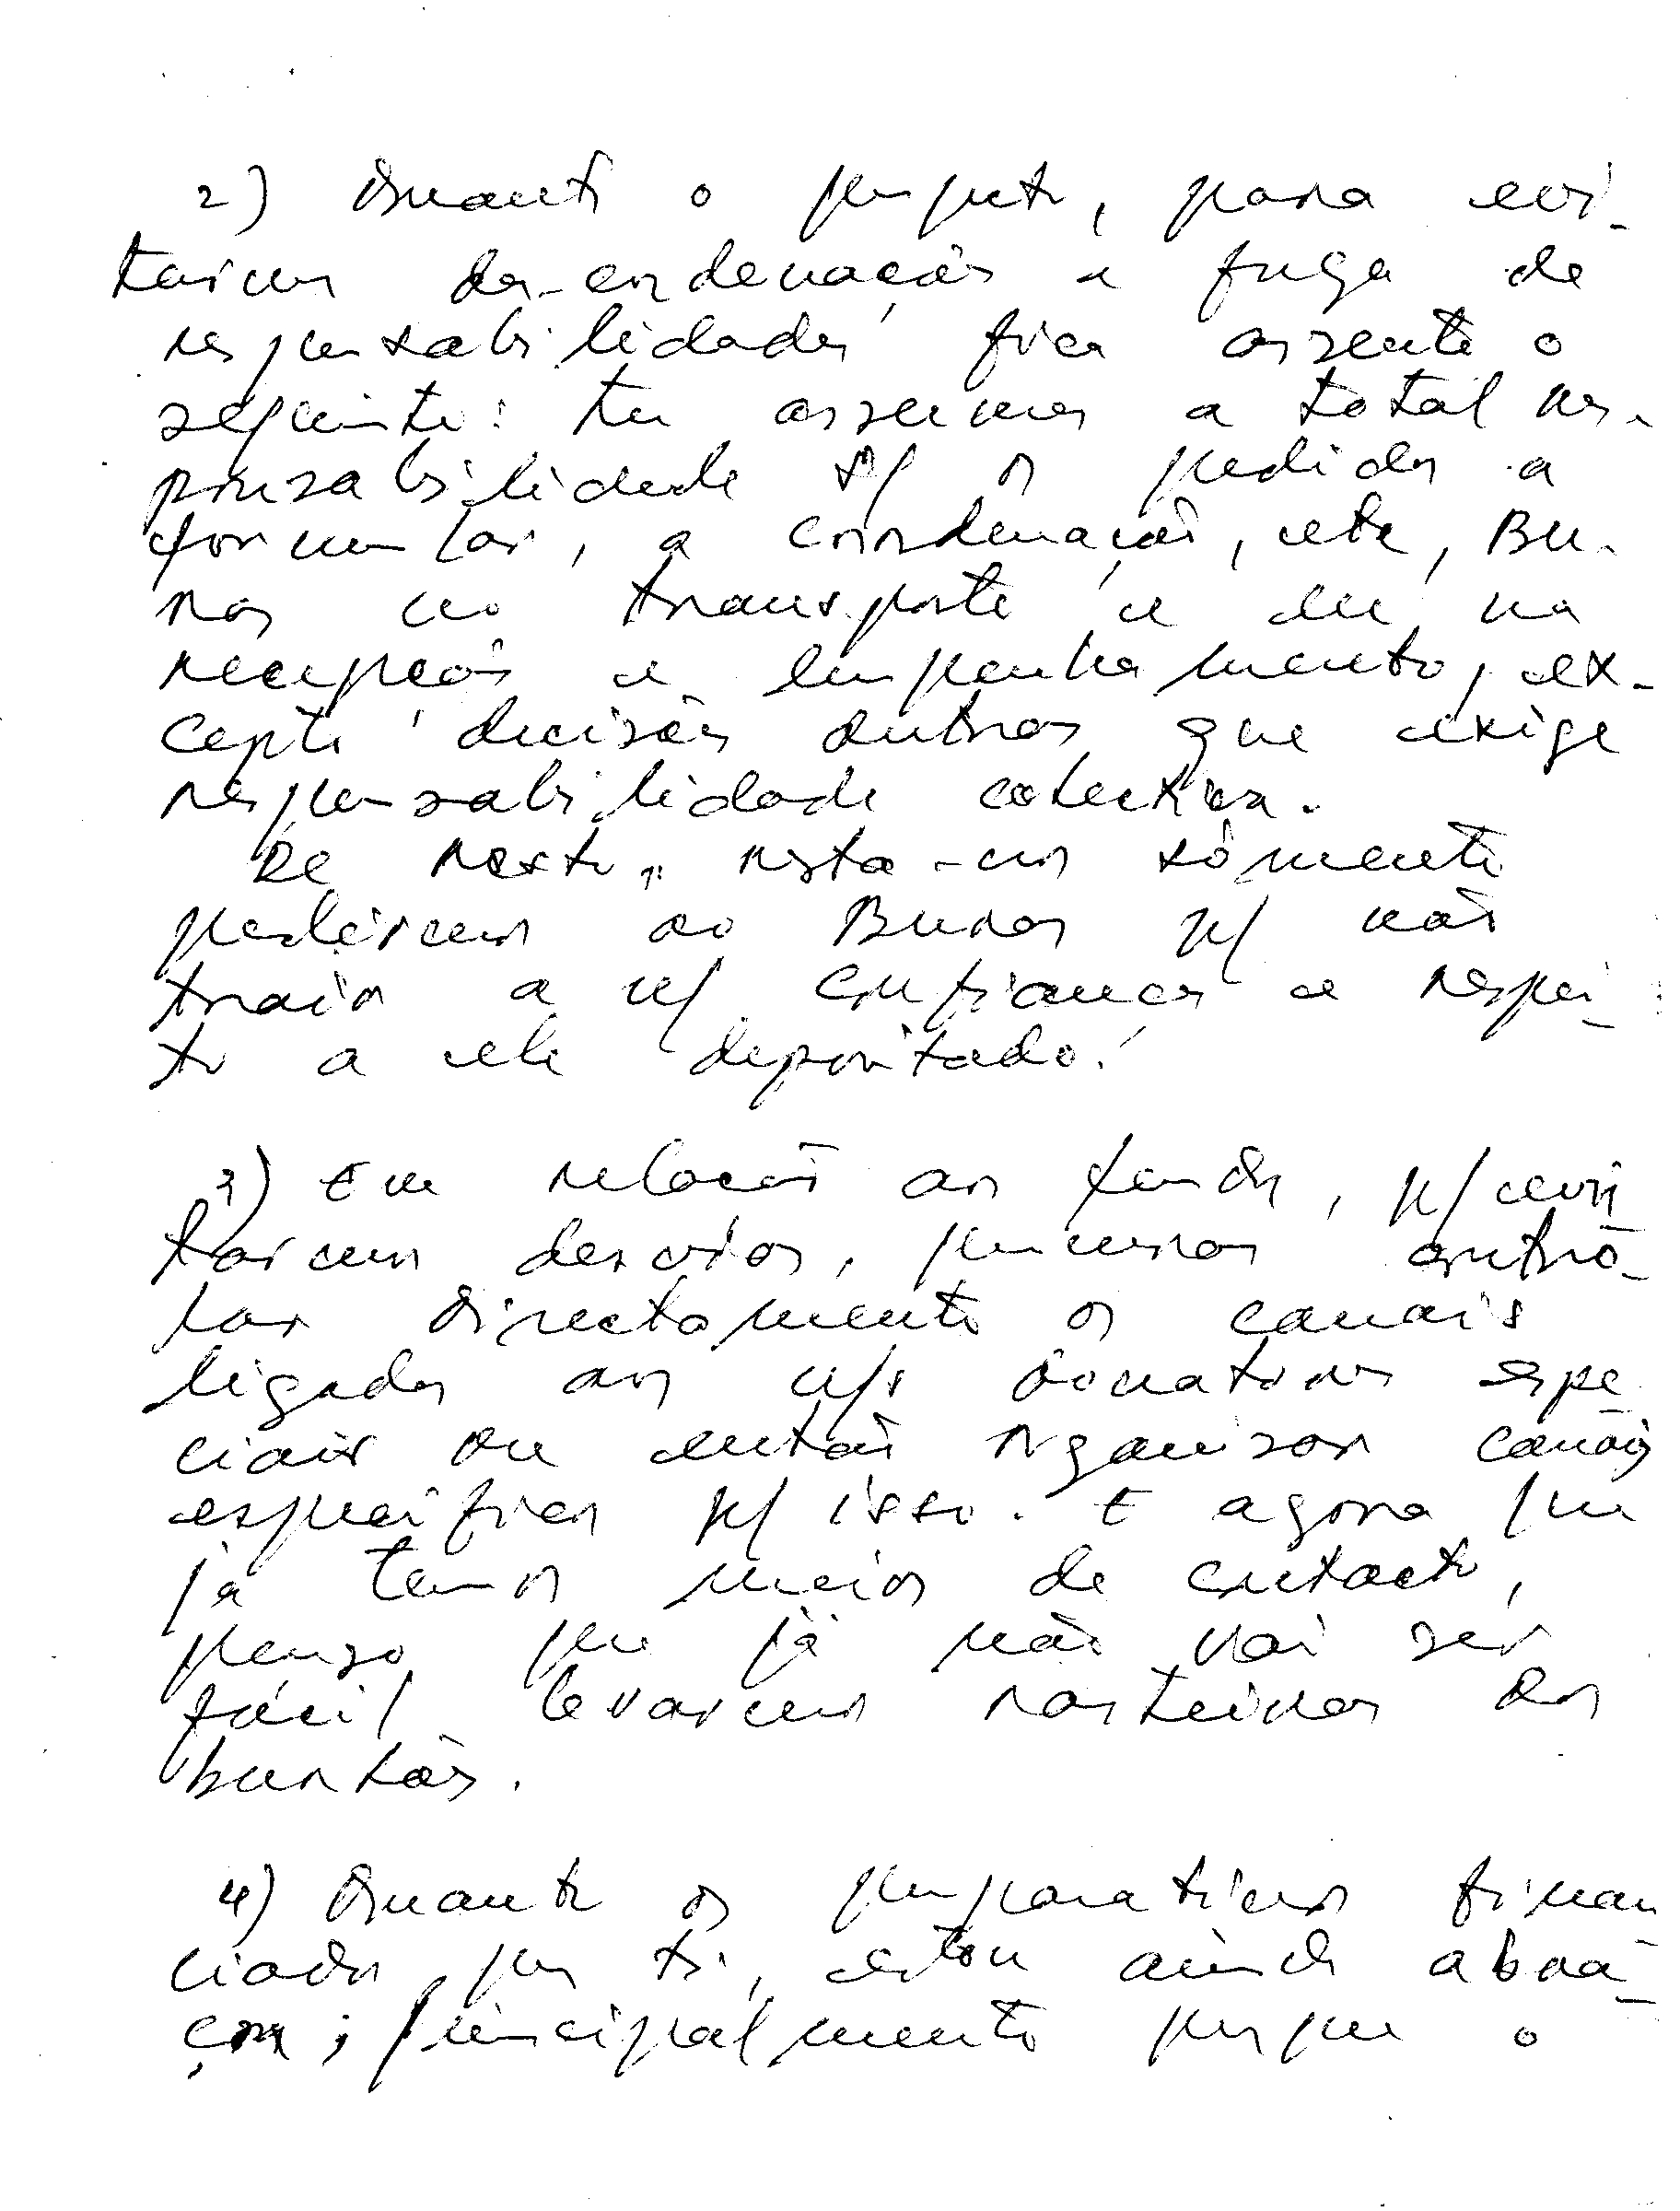 2) Quanto o projecto, para evi-
tarmos des-ordenação e fuga de
responsabilidades fica assente o
seguinte: tu assumes a total res-
ponsabilidade s/ os pedidos a
formular, a coordenação, etc, Bu-
ras no transporte e eu na
recepção e empenhamento, ex-
cepto decisões outras que exige
responsabilidade colectiva.
De resto, resta-nos sòmente
pedirmos ao Buras p/ não
trair a n/ confiança e respei-
to a ele depositado.
3) Em relação aos fundos, p/ evi-
tarmos desvios, procuras contro-
lar directamente os canais
ligados aos n/s donatores espe-
ciais ou então organizar canais
específicos p/ isso. E agora que
já temos meios de contacto,
penso que já não vai ser
fácil levarmos rasteiras dos
burlões.
4) Quanto os preparativos finan-
ciados por ti, estou ainda a bra-
ços; principalmente porque o